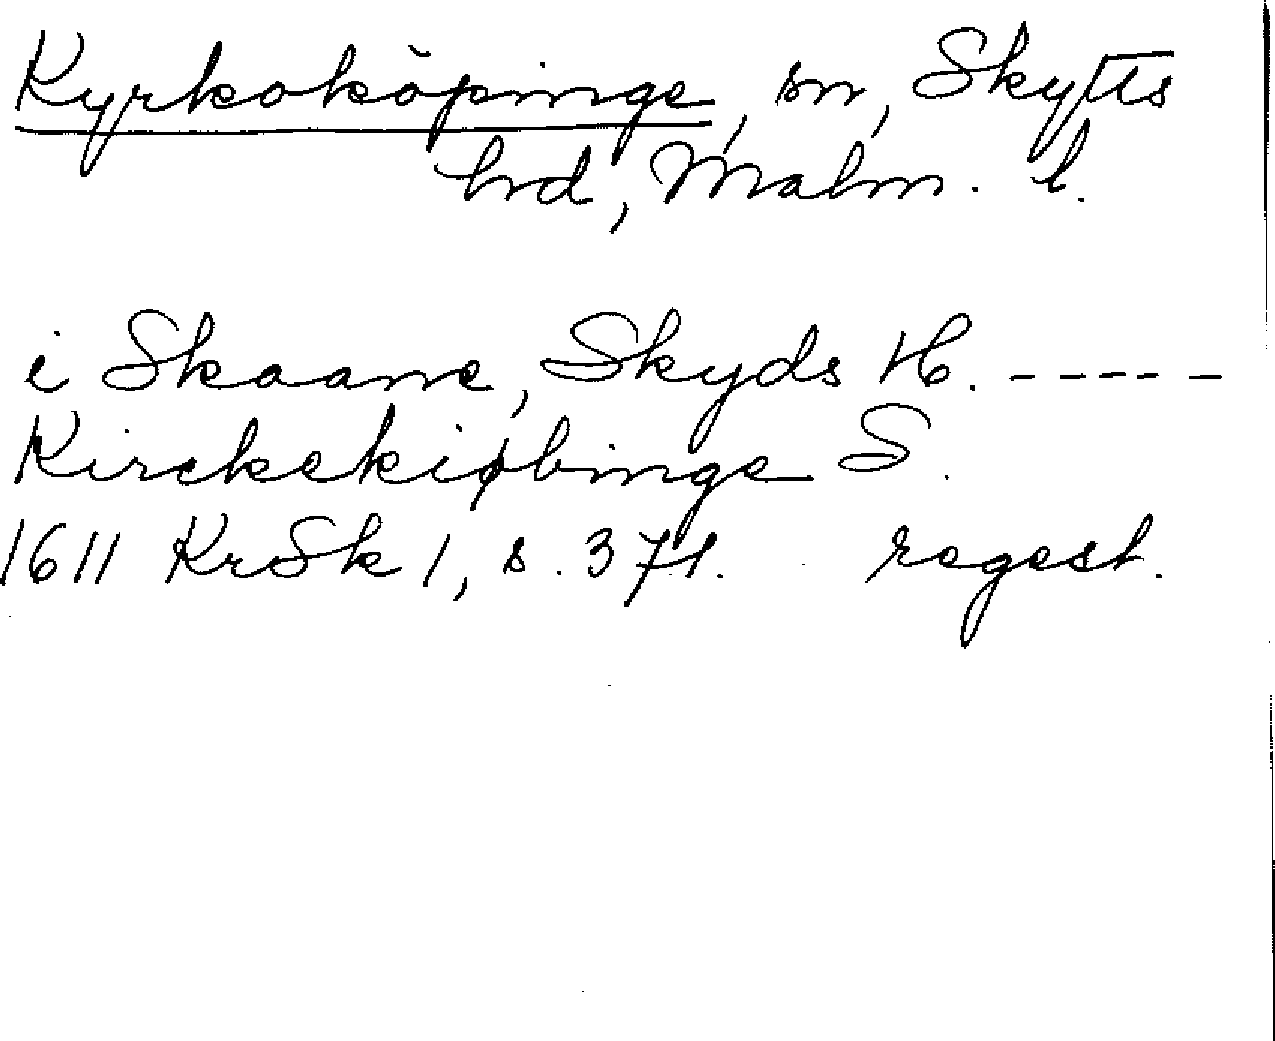 Kyrkoköpinge, sn, Skytts
hd, Malm. l.
i Skaane, Skyds H. -----
Kirckekiøbinge S.
1611 KrSk 1, s. 371. regest.